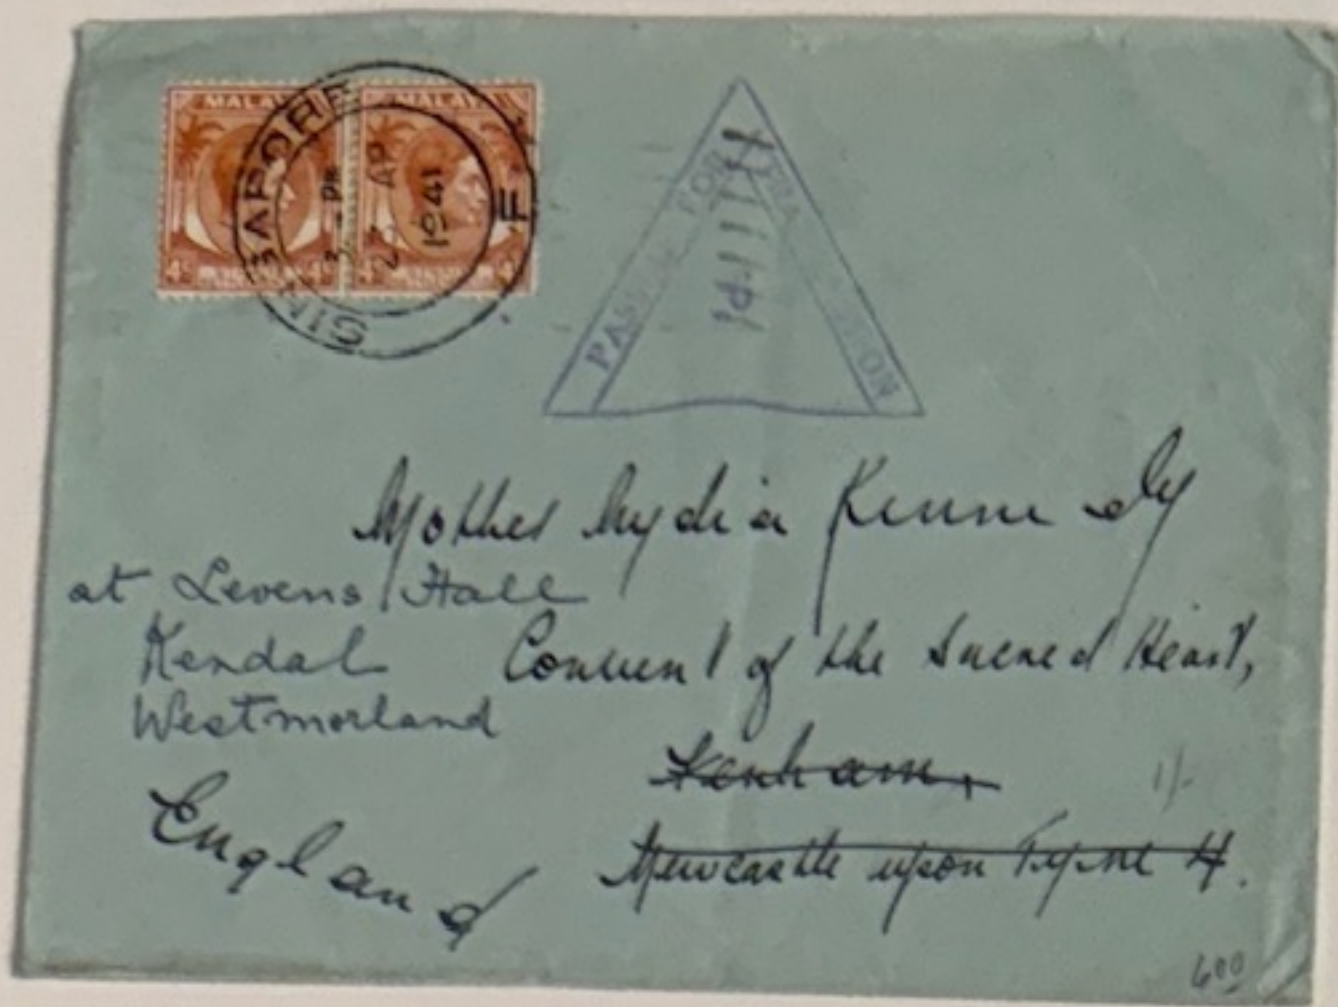 MALAYA MALAYA
4c 4c 4c 4c
SINGAPORE
3 - PM
AP
1941
F
PASSED FOR TRANSMISSION
Mother Lydia Kennedy
at Levens Hall
Kendal
Westmorland
Convent of the Sacred Heart,
Fenham,
Newcastle upon Tyne 4.
England
1/-
600